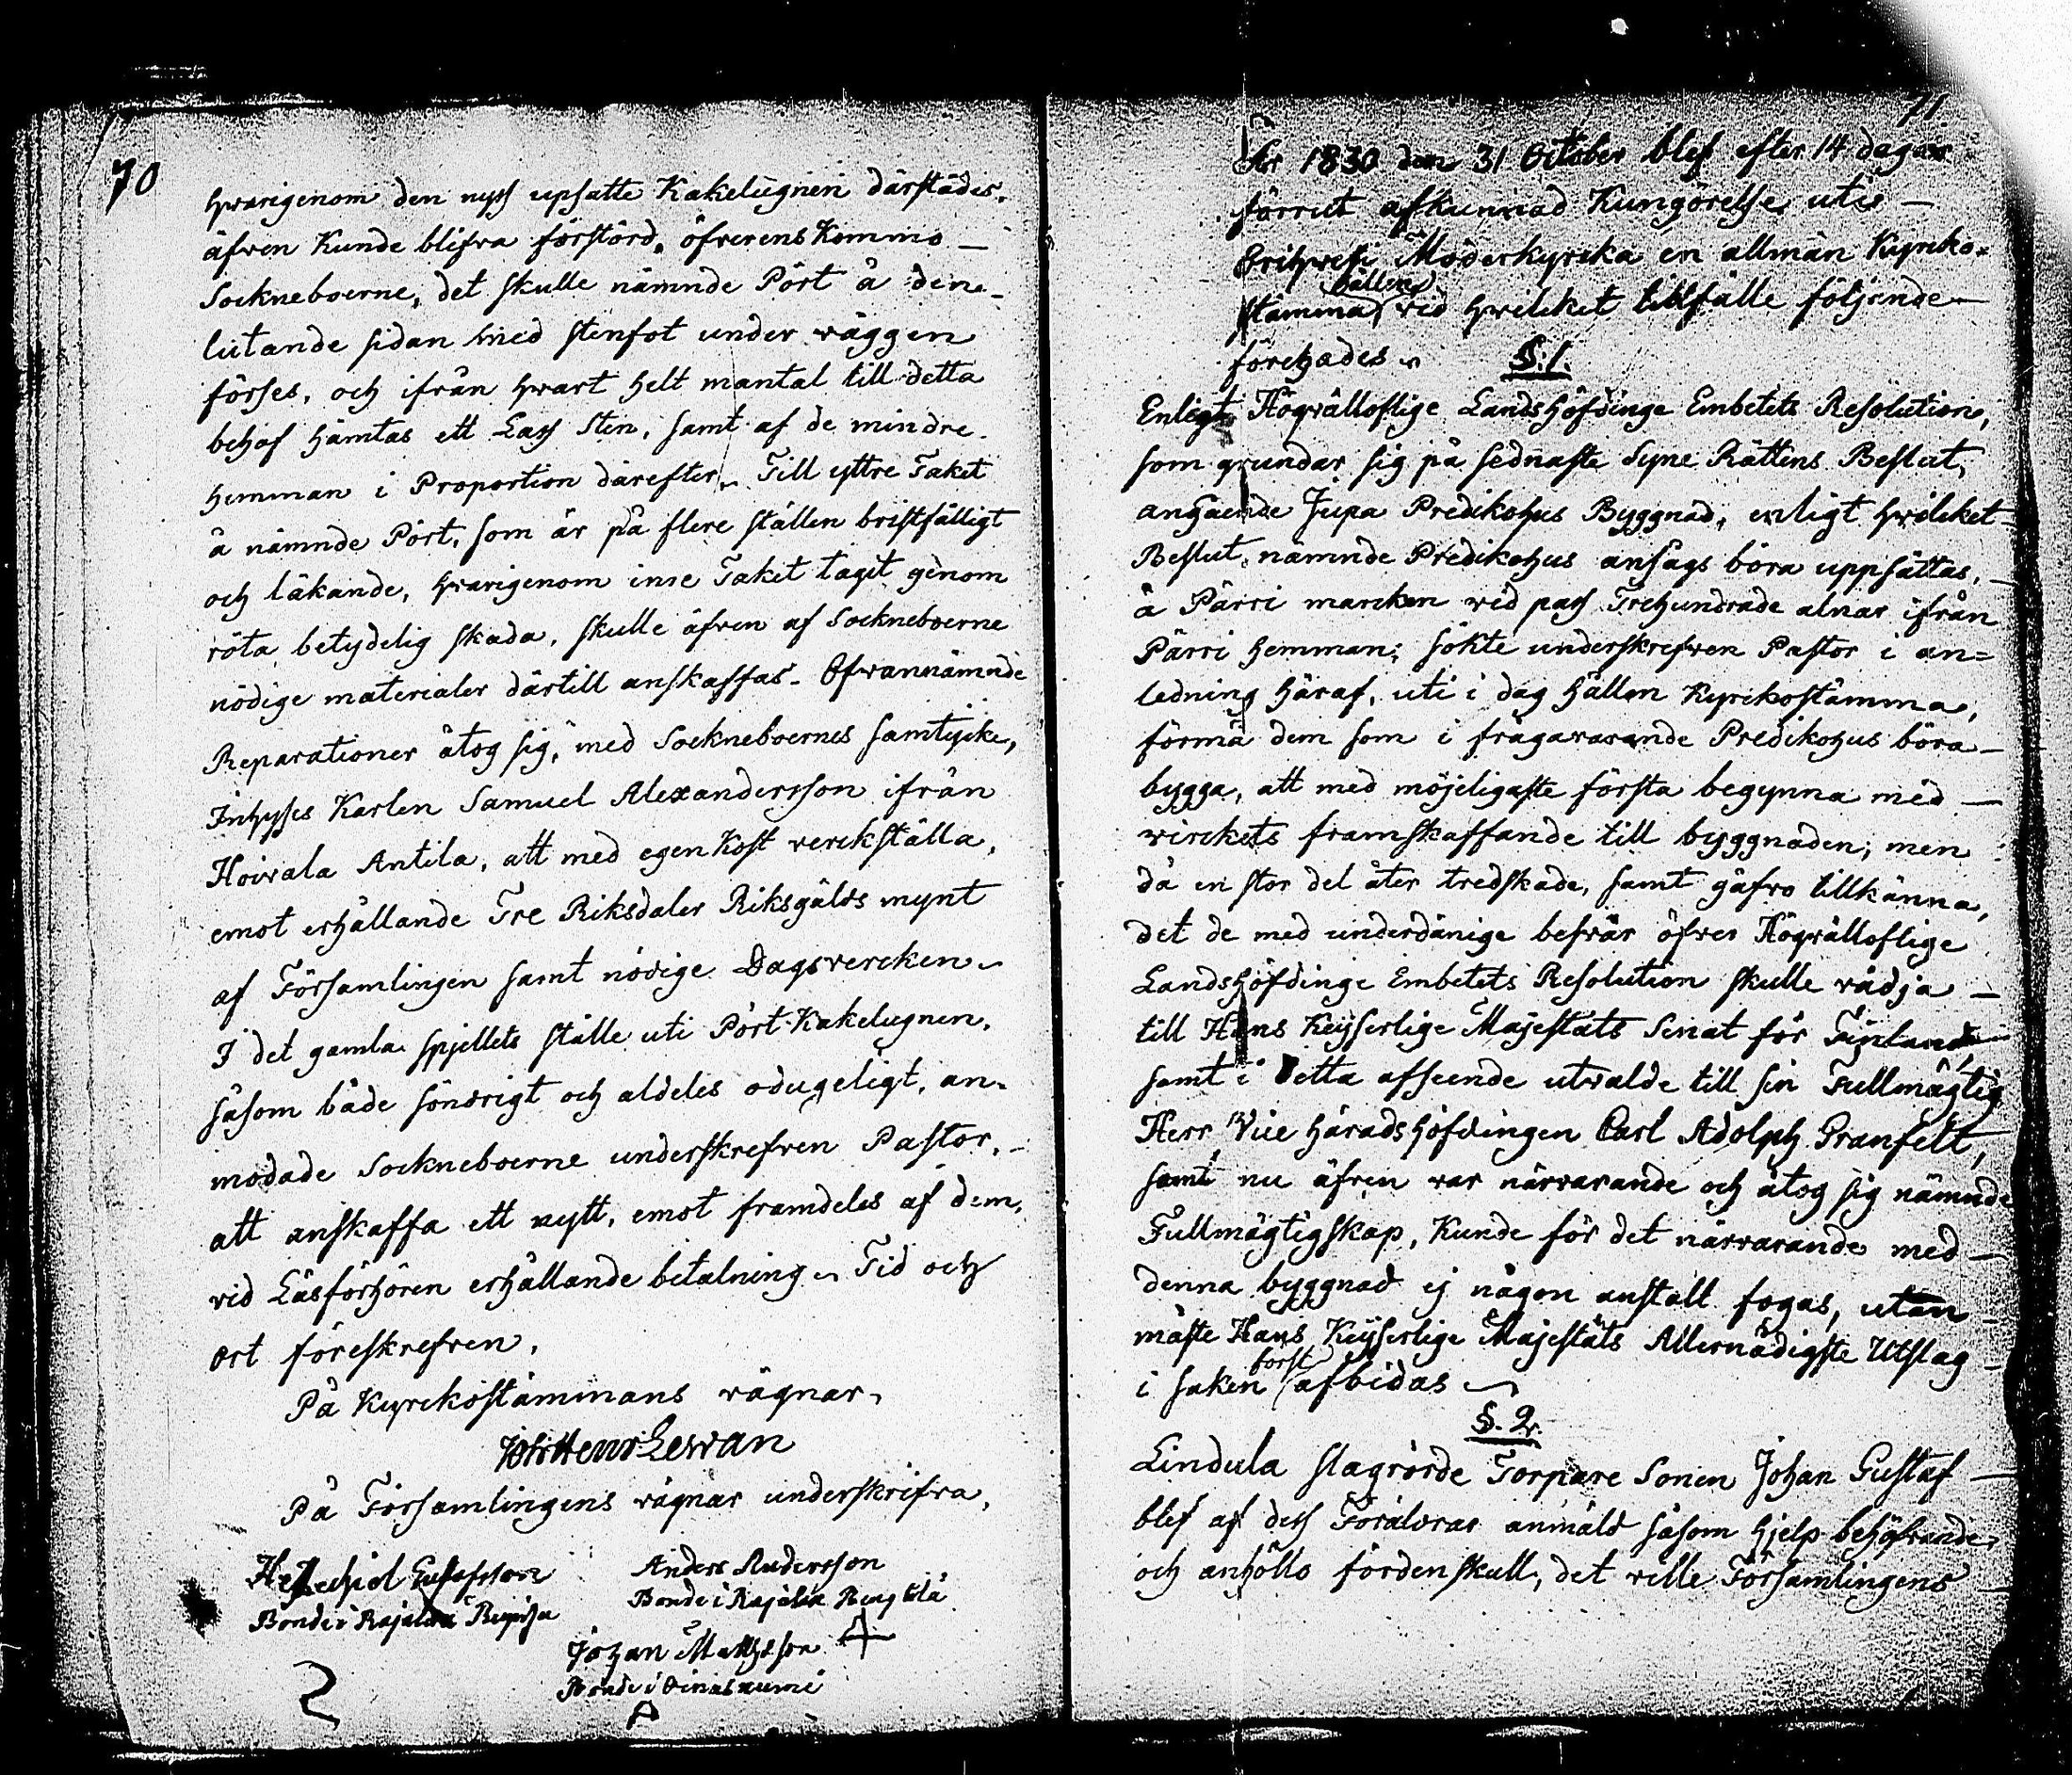 70
hwarigenom den nyss upsatte Kakelugnen därstädes,
äfven Kunde blifva förstörd, öfverens Kommo —
Sockneboerne, det skulle nämnde Pört å dene
lutande sidan med stenfot under väggen
förses, och ifrån hwart helt mantal till detta
behof hämtas ett Lass Sten, samt af de mindre
hemman i Proportion därefter. Till yttre Taket
å nämnde Pört, som är på flere ställen bristfälligt
och läkande, hvarigenom inre Taket tagit genom
röta betydelig skada, skulle äfven af Sockneboerne
nödige materialer därtill anskaffas. Ofvannämnde
Reparationer åtog sig, med Sockneboernes samtycke,
Inhyses Karlen Samuel Alexandersson ifrån
Hoivala Antila, att med egen Kost verckställa,
emot erhållande Tre Riksdaler Riksgälds mynt
af Församlingen samt nödige Dagsvercken.
I det gamla spjellets ställe uti Pört Kakelugnen,
såsom både söndrigt och aldeles odugeligt, an-
modade Sockneboerne underskrefven Pastor,
att anskaffa ett nytt, emot framdeles af dem,
vid Läsförhören erhållande betalning. Tid och
ort föreskrefven.
På Kyrckostämmans vägnar,
Joh: Henr Levan
På Församlingens vägnar underskrifva,
Hesechiel Gustafsson Anders Andersson
Bonde i Rajalax Bonde i Rajalax
Johan Mattsson
Bonde i Oinasnumi
71
År 1830 den 31 October blef efter 14 dagar
förrut afkunnad Kungörelse uti
Orihvesi Moderkyrcka en allmän Kyrcko-
hållen
stämma, vid hvilcket tillfälle följande
förehades. §. 1.
Enligt Högvälloflige Landshöfdinge Embetets Resolution,
som grundar sig på sednaste Syne Rättens Beslut,
angående Jupa Predikohus Byggnad, enligt hvilcket
Beslut nämnde Predikohus ansågs böra uppsättas,
å Pärri marcken vid pass Trehundrade alnar ifrån
Pärri hemman; sökte underskrefven Pastor i an=
ledning häraf, uti i dag hållen Kyrckostämma,
förmå dem som i frågavarande Predikohus böra
bygga, att med möjeligaste första begynna med —
virckets framskaffande till byggnaden; men
då en stor del åter tredskade, samt gåfvo tillkänna,
det de med underdånige besvär öfver Högvälloflige
Landshöfdinge Embetets Resolution skulle vädja —
till Hans Keyserlige Majestäts Senat för Finland,
samt i detta afseende utvalde till sin Fullmägtig
Herr Vice häradshöfdingen Carl Adolph Granfelt,
samt nu äfven var närvarande och åtog sig nämnde
Fullmägtigskap, Kunde för det närvarande med —
denna byggnad ej någon anstalt fogas, utan
måste Hans Keyserlige Majestäts Allernådigste Utslag
först
i saken afbidas
§. 2.
Lindula slagrörde Torpare Sonen Johan Gustaf —
blef af dess Föräldrar anmäld såsom hjelp behöfvande,
och anhöllo fördenskull, det ville Församlingens